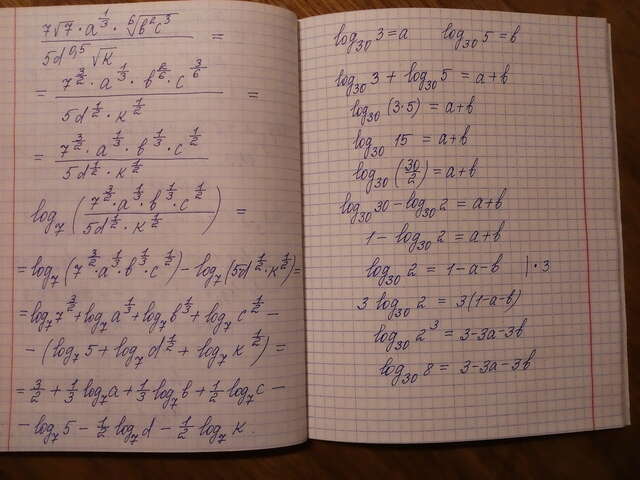 7√7 · a^(1/3) · ⁶√(b²c³) / 5d^(0,5) √k =
= 7^(3/2) · a^(1/3) · b^(2/6) · c^(3/6) / 5d^(1/2) · k^(1/2) =
= 7^(3/2) · a^(1/3) · b^(1/3) · c^(1/2) / 5d^(1/2) · k^(1/2)
log₇ (7^(3/2) · a^(1/3) · b^(1/3) · c^(1/2) / 5d^(1/2) · k^(1/2)) =
= log₇ (7^(3/2) · a^(1/3) · b^(1/3) · c^(1/2)) − log₇ (5d^(1/2) · k^(1/2)) =
= log₇ 7^(3/2) + log₇ a^(1/3) + log₇ b^(1/3) + log₇ c^(1/2) −
− (log₇ 5 + log₇ d^(1/2) + log₇ k^(1/2)) =
= 3/2 + 1/3 log₇ a + 1/3 log₇ b + 1/2 log₇ c −
− log₇ 5 − 1/2 log₇ d − 1/2 log₇ k.
log₃₀ 3 = a log₃₀ 5 = b
log₃₀ 3 + log₃₀ 5 = a + b
log₃₀ (3·5) = a + b
log₃₀ 15 = a + b
log₃₀ (30/2) = a + b
log₃₀ 30 − log₃₀ 2 = a + b
1 − log₃₀ 2 = a + b
log₃₀ 2 = 1 − a − b | · 3
3 log₃₀ 2 = 3(1 − a − b)
log₃₀ 2³ = 3 − 3a − 3b
log₃₀ 8 = 3 − 3a − 3b